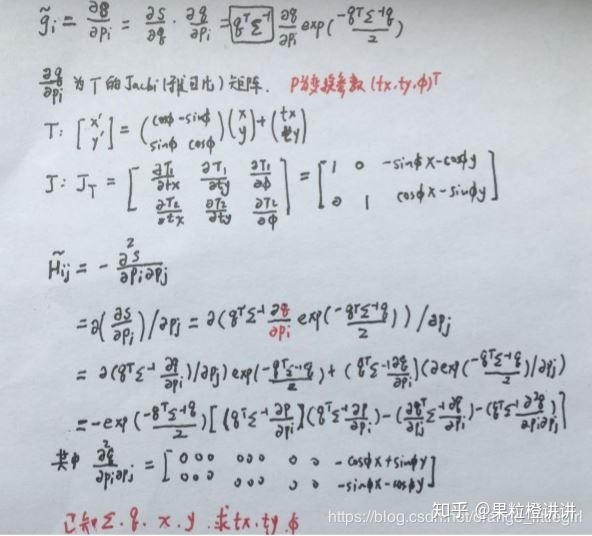 g̃ᵢ = ∂g/∂pᵢ = ∂s/∂q · ∂q/∂pᵢ = qᵀΣ⁻¹ ∂q/∂pᵢ exp(-qᵀΣ⁻¹q/2)
∂q/∂pᵢ 为T的Jacbi(雅可比)矩阵. P为变换参数(tx.ty.ϕ)ᵀ
T: [x' y'] = (cosϕ -sinϕ sinϕ cosϕ)(x y)+(tx ty)
J: J_T = [∂T₁/∂tx ∂T₁/∂ty ∂T₁/∂ϕ ∂T₂/∂tx ∂T₂/∂ty ∂T₂/∂ϕ] = [1 0 -sinϕx-cosϕy 0 1 cosϕx-sinϕy]
H̃ij = - ∂²s/∂pᵢ∂pⱼ
=∂(∂s/∂pᵢ)/∂pⱼ = ∂(qᵀΣ⁻¹ ∂q/∂pᵢ exp(-qᵀΣ⁻¹q/2))/∂pⱼ
= ∂(qᵀΣ⁻¹ ∂q/∂pᵢ)/∂pⱼ) exp(-qᵀΣ⁻¹q/2) + (qᵀΣ⁻¹∂q/∂pᵢ)(∂exp(-qᵀΣ⁻¹q/2)/∂pⱼ)
=-exp(-qᵀΣ⁻¹q/2)[(qᵀΣ⁻¹ ∂p/∂pᵢ)(qᵀΣ⁻¹ ∂p/∂pⱼ)-(∂qᵀ/∂pⱼ Σ⁻¹ ∂q/∂pᵢ)-(qᵀΣ⁻¹ ∂²q/∂pᵢ∂pⱼ)]
其中 ∂²q/∂pᵢ∂pⱼ = [0 0 0 0 0 0 0 0 -cosϕx+sinϕy 0 0 0 0 0 0 0 0 -sinϕx-cosϕy]
已知Σ.q.x.y.求tx.ty.ϕ
知乎 @果粒橙讲讲